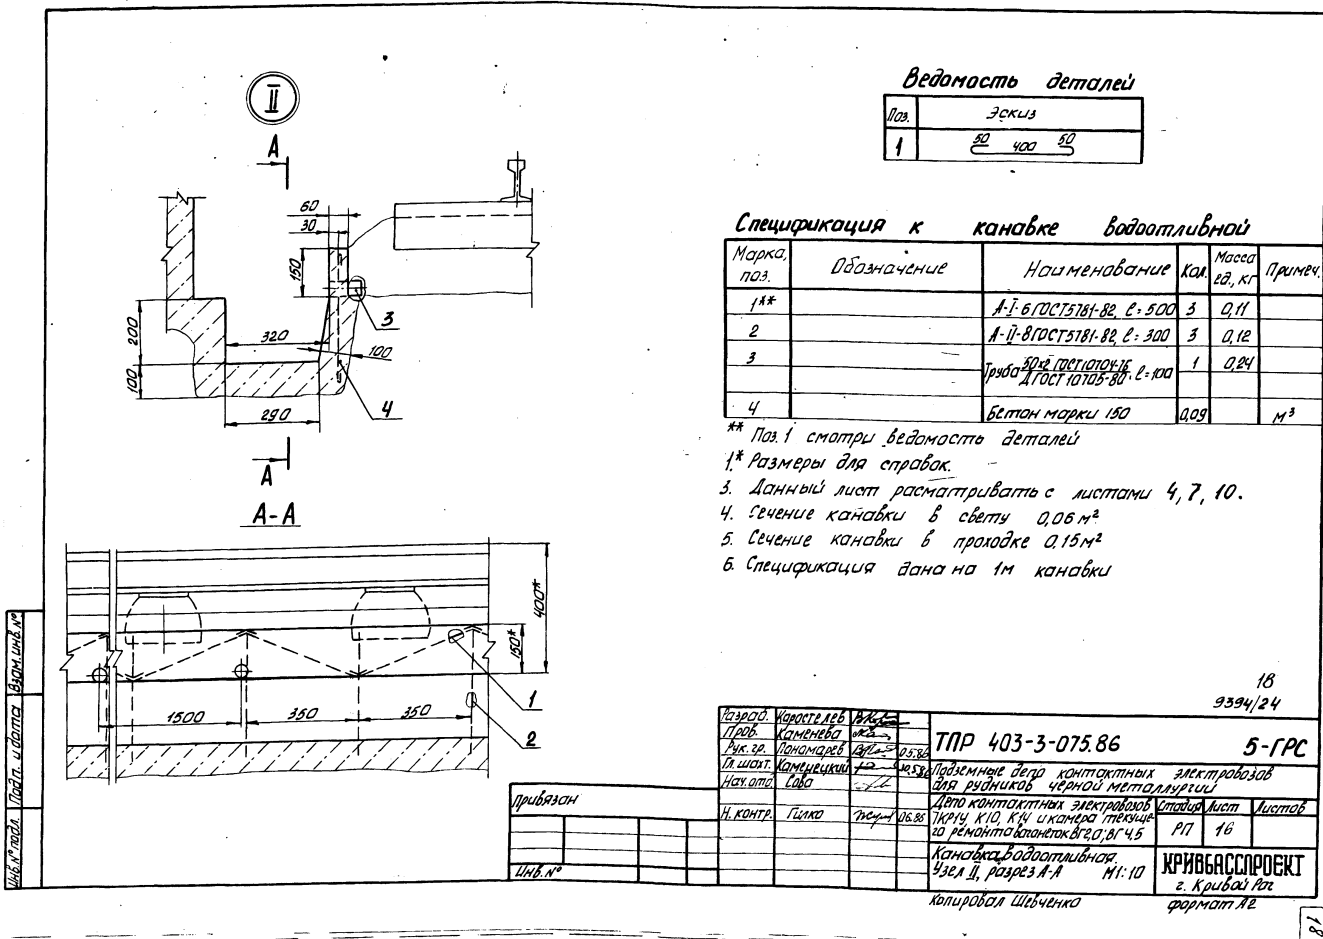 II
А
60
30
150
3
200
320
100
100
4
290
А
А-А
400*
150*
1
1500
350
350
2
Ведомость деталей
Поз.
Эскиз
1
50 400 50
Спецификация к канавке водоотливной
Марка, поз.
Обозначение
Наименование
Кол.
Масса ед., кг
Примеч.
1** А-I-6 ГОСТ 5781-82, ℓ=500 3 0,11
2 А-II-8 ГОСТ 5781-82, ℓ=300 3 0,12
3 Труба 50х2 ГОСТ 10704-76 / Д ГОСТ 10705-80, ℓ=100 1 0,24
4 Бетон марки 150 0,09 м³
** Поз. 1 смотри ведомость деталей
1.* Размеры для справок.
3. Данный лист расматривать с листами 4, 7, 10.
4. Сечение канавки в свету 0,06 м²
5. Сечение канавки в проходке 0,15 м²
6. Спецификация дана на 1м канавки
18
9394/24
Разраб. Коростелев
Пров. Каменева
Рук. гр. Пономарев 05.86
Гл. шахт. Каменецкий 05.86
Нач. отд. Сова
Н. контр. Гилко 06.86
ТПР 403-3-075.86 5-ГРС
Подземные депо контактных электровозов
для рудников черной металлургии
Депо контактных электровозов
7КР1У, К10, К14 и камера текуще-
го ремонта вагонеток ВГ2,0; ВГ4,5
Стадия Лист Листов
РП 16
Канавка водоотливная.
Узел II, разрез А-А М1:10
КРИВБАССПРОЕКТ
г. Кривой Рог
Копировал Шевченко
формат А2
Привязан
Инв. №
Взам. инв. №
Подп. и дата
Инв. № подл.
18